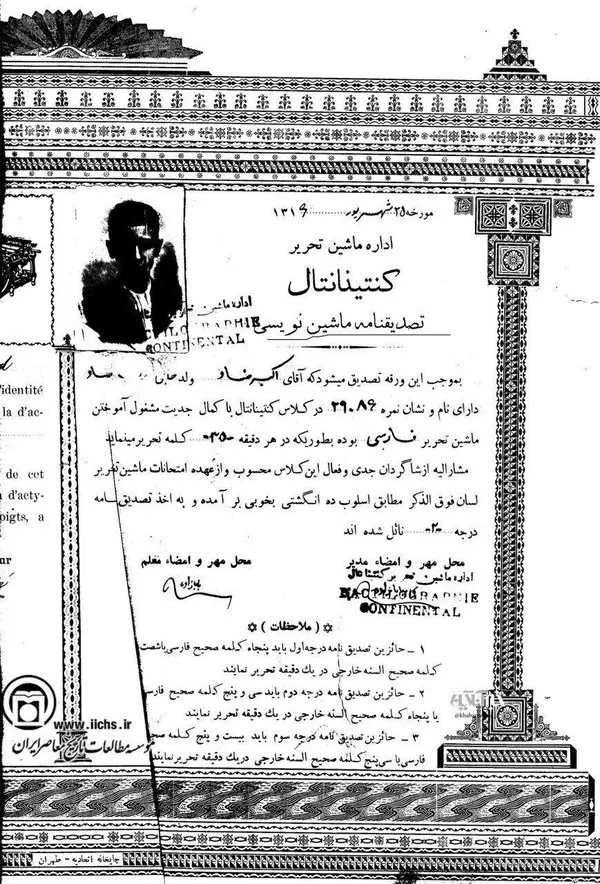 مورخه ۲۵ شهریور ۱۳۱۶
اداره ماشین تحریر
کنتیناتال
تصدیقنامه ماشین نویسی
اداره ماشین
DACTYLOGRAPHIE
CONTINENTAL
بموجب این ورقه تصدیق میشود که آقای اکبر ولد
دارای نام و نشان نمره ۲۹۰۸۶ در کلاس کنتیناتال با کمال جدیت مشغول آموختن
ماشین تحریر فارسی بوده بطوریکه در هر دقیقه -۳۵- کلمه تحریر مینماید
مشارالیه از شاگردان جدی و فعال این کلاس محسوب و از عهده امتحانات ماشین تحریر
لسان فوق الذکر مطابق اسلوب ده انگشتی بخوبی بر آمده و به اخذ تصدیق نامه
درجه -۲- نائل شده اند
محل مهر و امضاء مدیر
محل مهر و امضاء معلم
اداره ماشین تحریر کنتینانتال
DACTYLOGRAPHIE
CONTINENTAL
( ملاحظات )
۱ ـ حائزین تصدیق نامه درجه اول باید پنجاه کلمه صحیح فارسی یا شصت
کلمه صحیح السنه خارجی در یك دقیقه تحریر نمایند
۲ ـ حائزین تصدیق نامه درجه دوم باید سی و پنج کلمه صحیح فارسی
یا پنجاه کلمه صحیح السنه خارجی در یك دقیقه تحریر نمایند
۳ ـ حائزین تصدیق نامه درجه سوم باید بیست و پنج کلمه صحیح
فارسی یا سی پنج کلمه صحیح السنه خارجی در یك دقیقه تحریر نمایند
چاپخانه اتحادیه - طهران
l'identité
la d'ac-
de cet
d'acty-
oigts, a
www.iichs.ir
موسسه مطالعات تاریخ معاصر ایران